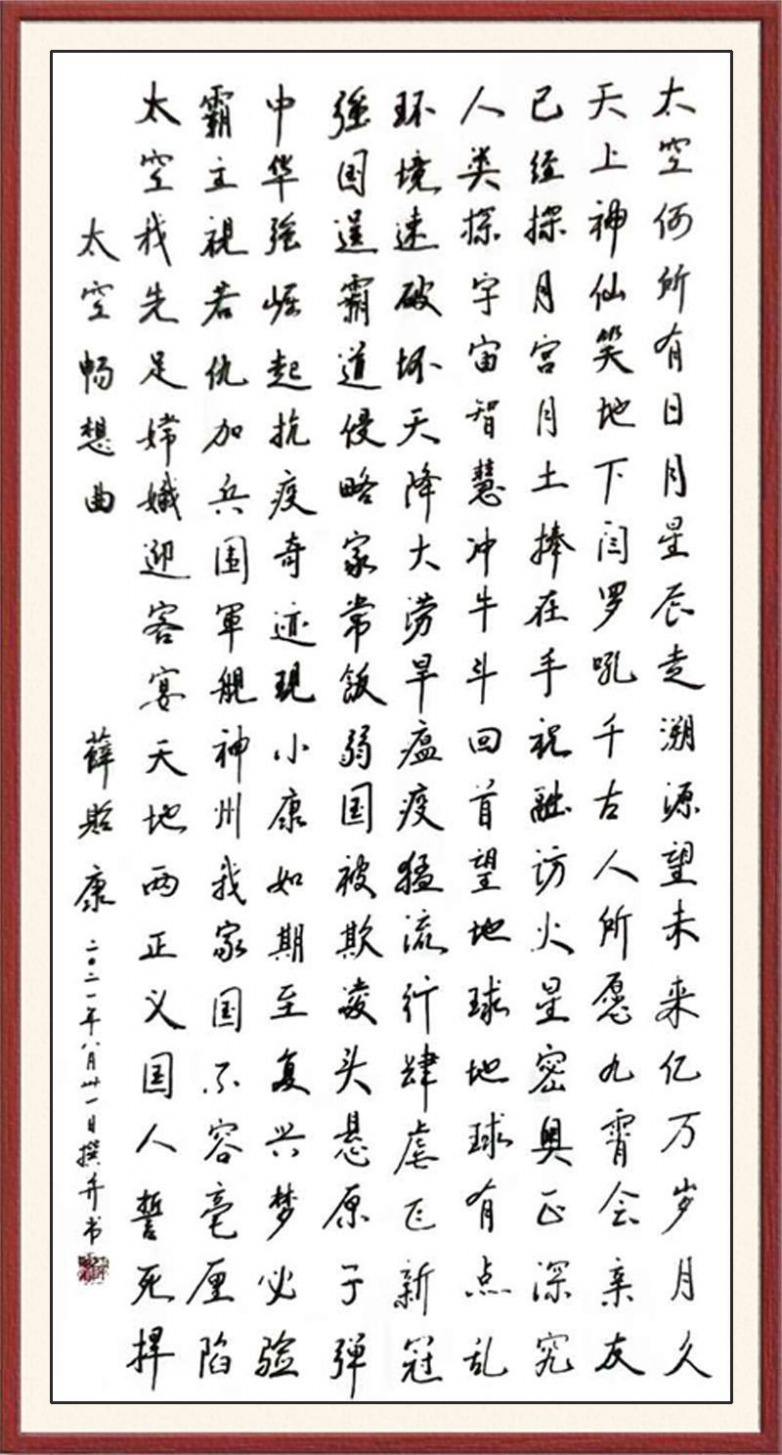 太空何所有日月星辰走溯源望未来亿万岁月久
天上神仙笑地下闫罗吼千古人所愿九霄会亲友
已经探月宫月土捧在手祝融访火星密奥正深究
人类探宇宙智慧冲牛斗回首望地球地球有点乱
环境速破坏天降大涝旱瘟疫猛流行肆虐正新冠
强国逞霸道侵略家常飯弱国被欺凌头悬原子弹
中华强崛起抗疫奇迹現小康如期至复兴梦必验
霸主視若仇加兵围軍舰神州我家国不容毫厘陷
太空我先足嫦娥迎客宴天地两正义国人誓死捍
太空畅想曲
薛贻康
二〇二一年八月卅一日撰并书